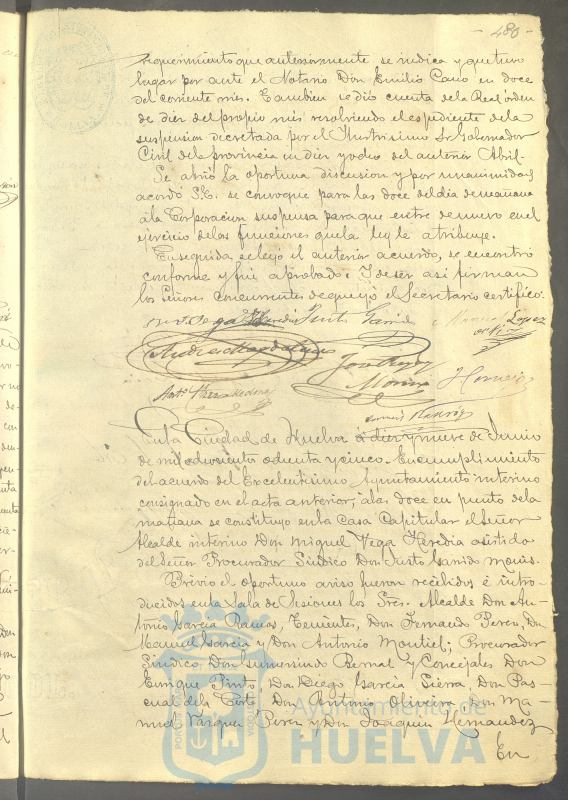 - 480 -
requerimiento que anteriormente se indica y que tuvo
lugar por ante el Notario Don Emilio Cano en doce
del corriente mes. Tambien se dió cuenta de la Real órden
de diez del propio mes resolviendo el espediente de la
suspension decretada por el Ilustrisimo Sr. Gobernador
Civil de la provincia en diez y ocho del anterior Abril.
Se abrió la oportuna discusion y por unanimidad
acordó S.E. se convoque para las doce del dia de mañana
á la Corporacion suspensa para que entre de nuevo en el
ejercicio de las funciones que la ley le atribuye.
En seguida se leyó el anterior acuerdo, se encontró
conforme y fué aprobado. Y de ser asi firman
los Señores concurrentes de que yo el Secretario certifico.
Vega Heredia Justo Garrido Manuel Lopez
Moreno
En la Ciudad de Huelva á diez y nueve de Junio
de mil ochocientos ochenta y cinco. En cumplimiento
del acuerdo del Excelentisimo Ayuntamiento interino
consignado en el acta anterior, á las doce en punto de la
mañana se constituyó en la Casa Capitular el Señor
Alcalde interino Don Miguel Vega Heredia asistido
del Señor Procurador Sindico Don Justo Garrido
Previo el oportuno aviso fueron recibidos é intro-
ducidos en la Sala de Sesiones los Sres. Alcalde Don An-
tonio Garcia Ramos, Tenientes, Don Fernando Perez, Don
Manuel Garcia y Don Antonio Montiel; Procurador
Sindico, Don Gumersindo Bernal y Concejales Don
Enrique Pinto Don Diego Garcia Sierra, Don Pas-
cual de la Corte Don Antonio Oliveira, Don Ma-
nuel Vazquez Perez y Don Joaquin Hernandez
En
Ayuntamiento de
HUELVA